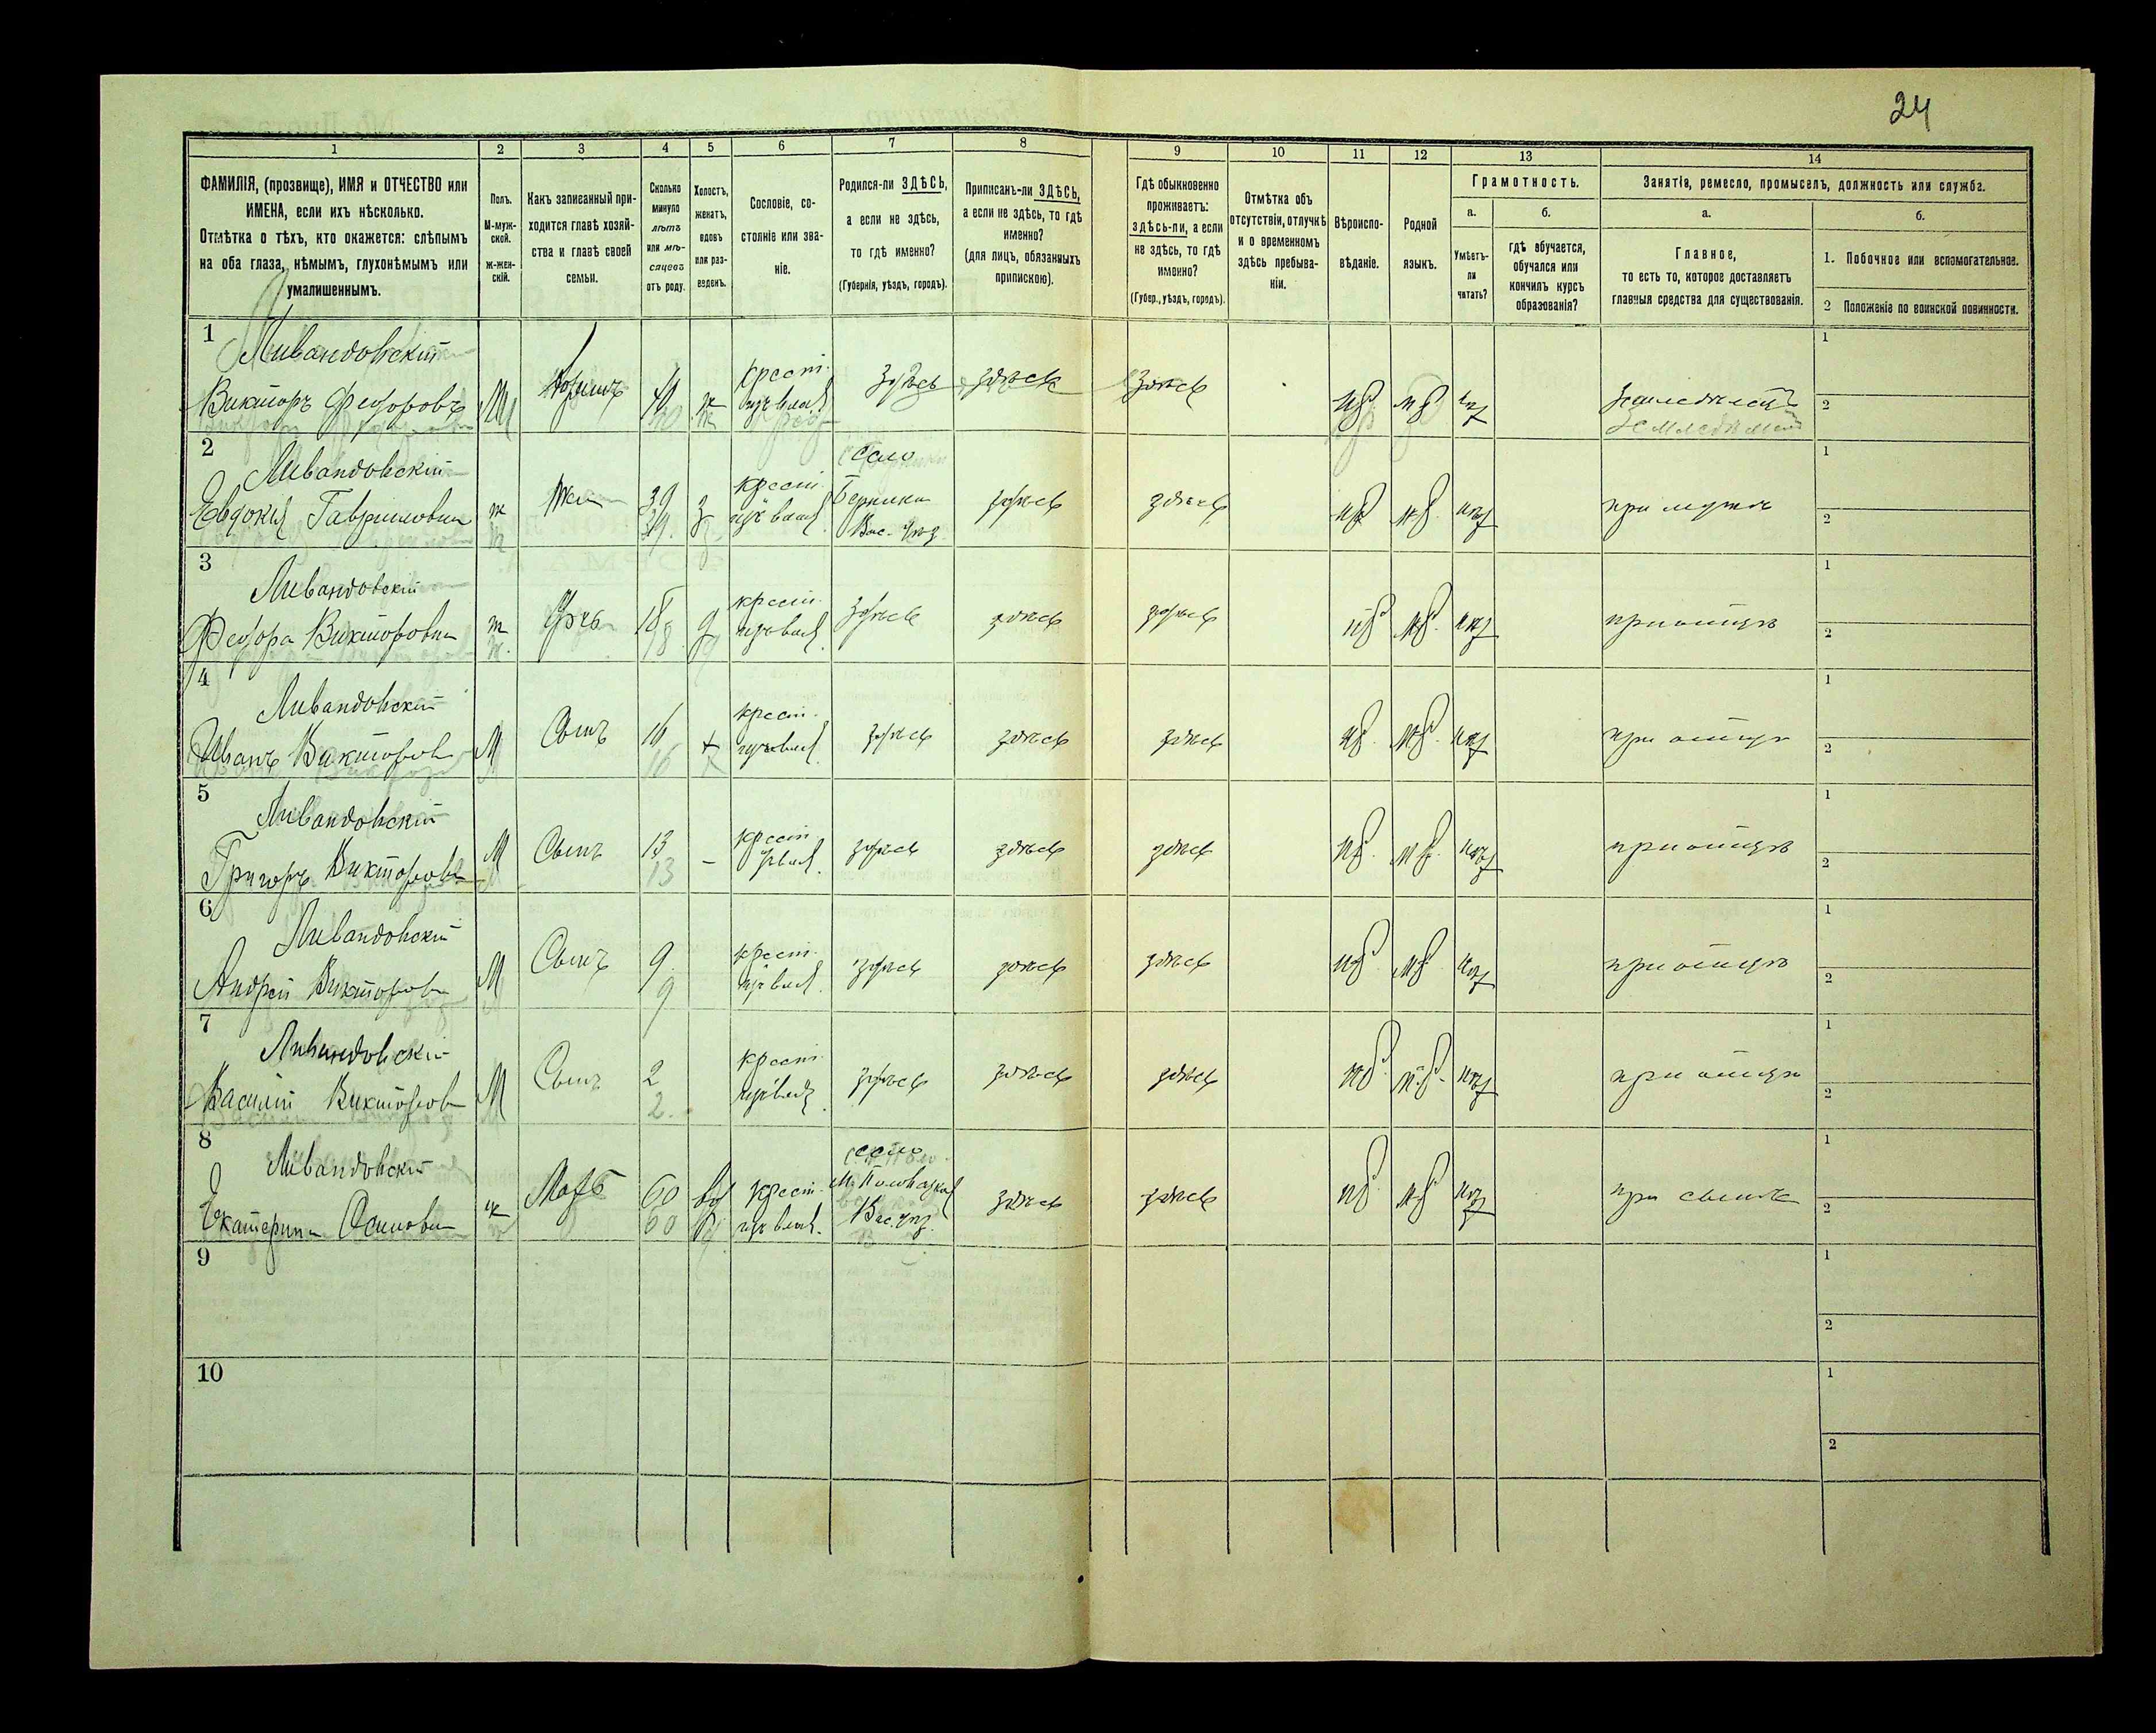 24
1 2 3 4 5 6 7 8 9 10 11 12 13 14
ФАМИЛІЯ, (прозвище), ИМЯ и ОТЧЕСТВО или
ИМЕНА, если ихъ нѣсколько.
Отмѣтка о тѣхъ, кто окажется: слѣпымъ
на оба глаза, нѣмымъ, глухонѣмымъ или
умалишеннымъ.
Полъ.
М-муж-
ской.
ж-жен-
скій.
Какъ записанный при-
ходится главѣ хозяй-
ства и главѣ своей
семьи.
Сколько
минуло
лѣтъ
или мѣ-
сяцевъ
отъ роду.
Холостъ,
женатъ,
вдовъ
или раз-
веденъ.
Сословіе, со-
стояніе или зва-
ніе.
Родился-ли ЗДѢСЬ,
а если не здѣсь,
то гдѣ именно?
(Губернія, уѣздъ, городъ).
Приписанъ-ли ЗДѢСЬ,
а если не здѣсь, то гдѣ
именно?
(для лицъ, обязанныхъ
припискою).
Гдѣ обыкновенно
проживаетъ:
здѣсь-ли, а если
не здѣсь, то гдѣ
именно?
(Губер., уѣздъ, городъ).
Отмѣтка объ
отсутствіи, отлучкѣ
и о временномъ
здѣсь пребыва-
ніи.
Вѣроиспо-
вѣданіе.
Родной
языкъ.
Грамотность.
а.
Умѣетъ-
ли
читать?
б.
гдѣ обучается,
обучался или
кончилъ курсъ
образованія?
Занятія, ремесло, промыселъ, должность или служба.
а.
Главное,
то есть то, которое доставляетъ
главныя средства для существованія.
б.
1. Побочное или вспомогательное.
2 Положеніе по воинской повинности.
1
Ливандовскій
Викторъ Федоровъ М ж крест. здѣсь здѣсь здѣсь
1
2
2
Ливандовскій
Евдокія Гавриловна ж Жена 39 з крест. село здѣсь здѣсь при мужѣ
39. Вас. уѣз.
1
2
3
Ливандовскій
Федора Викторовна ж Дочь 18 д крест. здѣсь здѣсь здѣсь при отцѣ
18
1
2
4
Ливандовскій
Иванъ Викторов М Сынъ 16 х крест. здѣсь здѣсь здѣсь при отцѣ
16 х
1
2
5
Ливандовскій
Григоръ Викторовъ М Сынъ 13 - крест. здѣсь здѣсь здѣсь при отцѣ
13
1
2
6
Ливандовскій
Андрей Викторов М Сынъ 9 крест. здѣсь здѣсь здѣсь при отцѣ
9
1
2
7
Ливандовскій
Василій Викторов М Сынъ 2 крест. здѣсь здѣсь здѣсь при отцѣ
2.
1
2
8
Ливандовскій
Екатерина Осиповна ж Мать 60 вд крест. село здѣсь здѣсь при сынѣ
60 Вас. уѣз.
1
2
9
1
2
10
1
2